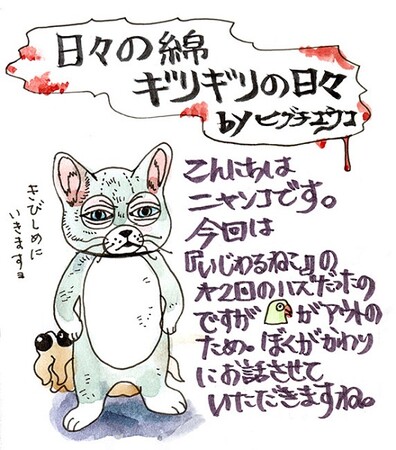 日々の綿
ギリギリの日々
by ヒグチユウコ
きびしめに
いきますョ
こんにちは
ニャンコです。
今回は
『いじわるねこ』の
オ2回のハズだったの
ですが がアウトの
ため。ぼくがかわり
にお話させて
いただきますね。